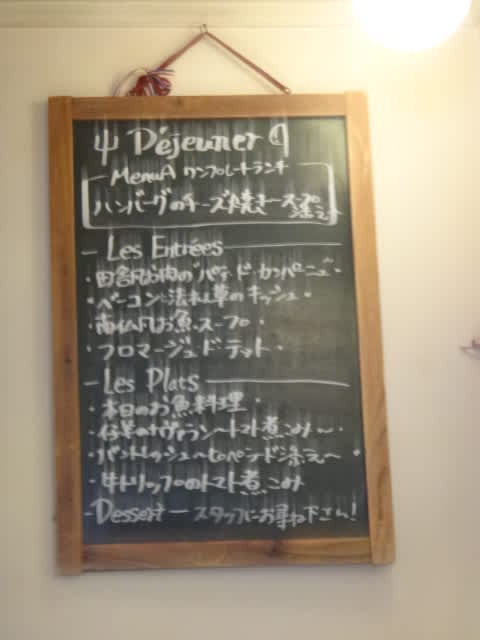 Déjeuner
MenuA ワンプレートランチ
ハンバーグのチーズ焼き スープ添え
Les Entrées
・田舎風お肉のパテ・ド・カンパーニュ・
・ベーコンと法れん草のキッシュ・
・南仏風お魚スープ・
・フロマージュ・ド・テット・
Les Plats
・本日のお魚料理・
・仔羊のナヴァラン〜トマト煮こみ〜・
〜ピペラード添え〜・
・牛トリップのトマト煮こみ
-Dessert- スタッフにお尋ね下さい!